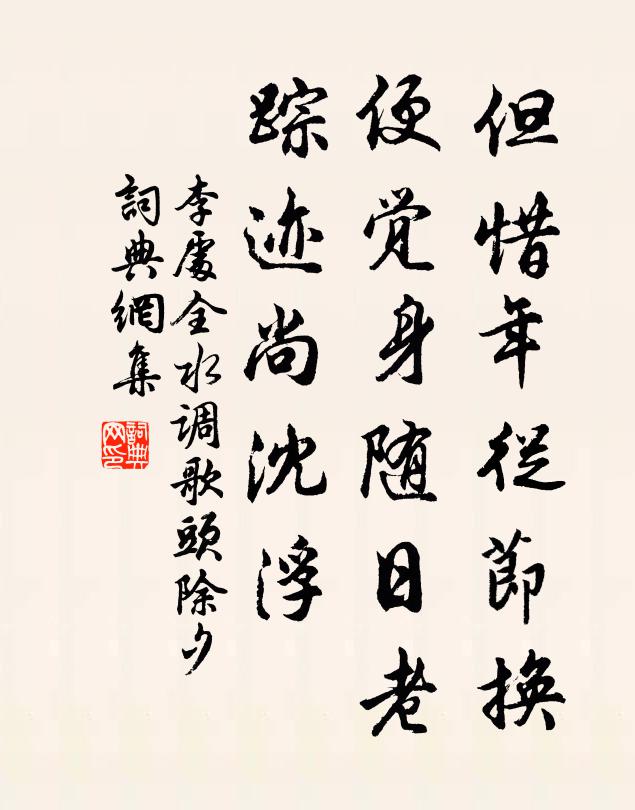 但惜年從節換
便觉身随日老
踪迹尚沈浮
李處全水调歌頭除夕
詞典網集
詞典网印